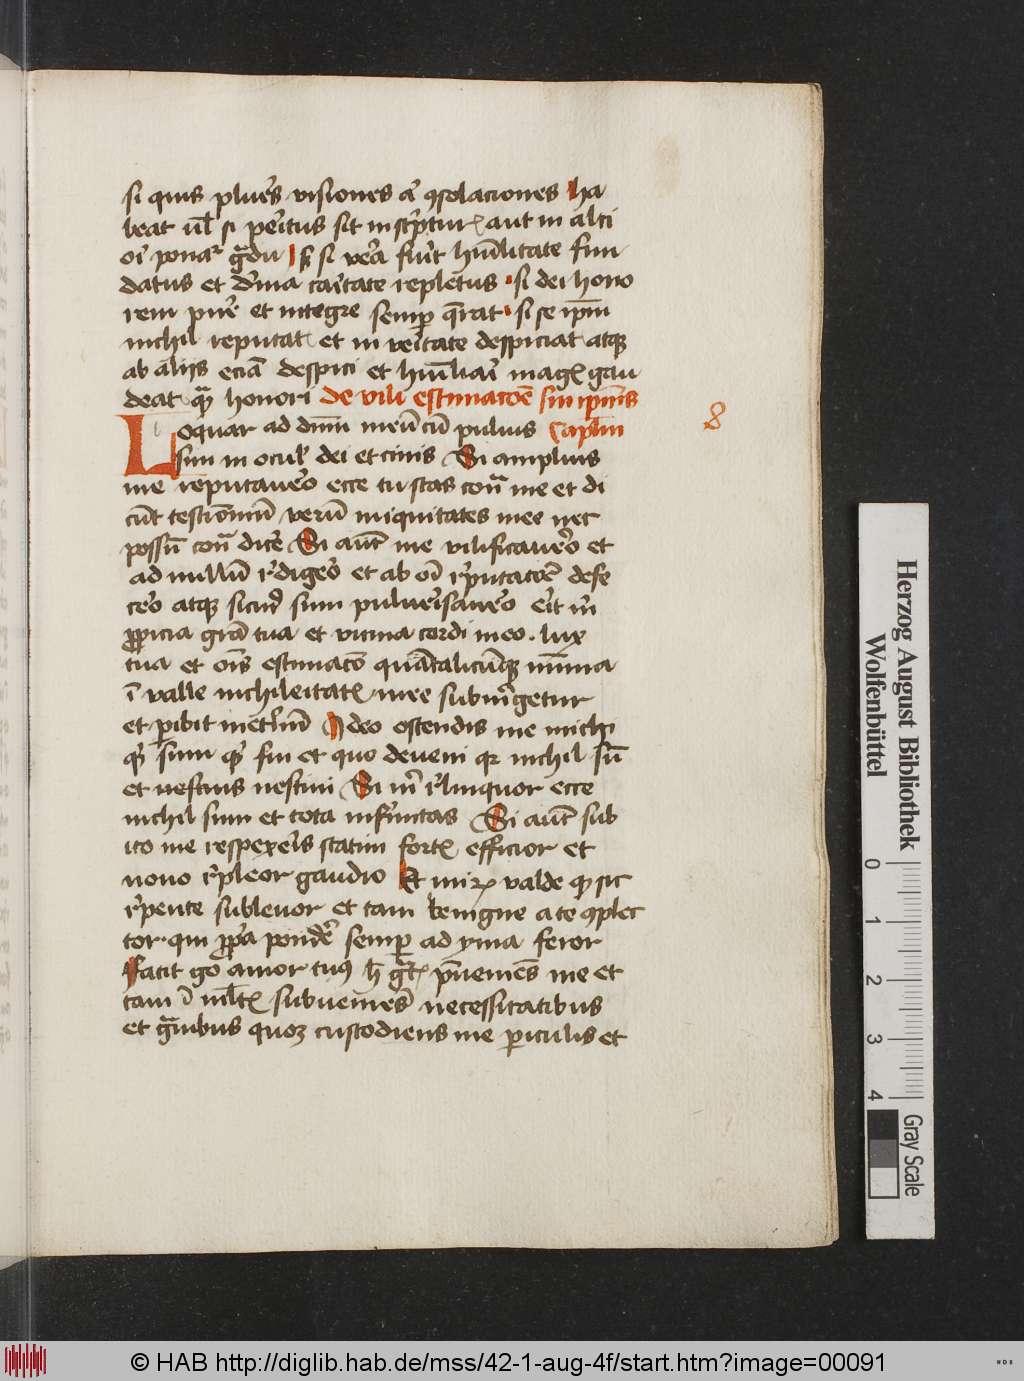 si quis plures visiones aut ꝯsolaciones ha
beat ul̄ si peritus sit in scriptur aut in alti
ori ponatr gͣdu ſꝫ si vera fuerit hūilitate fun
datus et diuina caritate repletus si dei hono
rem pure et integre semp qͣerat si se ipm̄
nichil reputat et in veritate despiciat atqꝫ
ab alijs eciā despici et humiliari magis gau
deat qͣ honori de vili estimacōe sui ipius
Loquar ad dn̄m meū cū puluis Caplm 8
sim in ocul dei et cinis Si amplius
me reputauero ecce tu stas contͣ me et di
cūt testimoniū verū iniquitates mee nec
possū contͣ dicere Si autē me vilificauero et
ad nullū redigero et ab oī reputacōe defe
cero atqꝫ sicud sum puluerisauero erit mͥ
ꝓpicia grā tua et vicina cordi meo lux
tua et ois estimacō quātalicūqꝫ minima
ī valle nichileitatis mee submergetur
et peribit in eternū Ideo ostendis me michi
qͩ sum qͩ fui et quo deueni qr nichil sū
et nesciuis nesciui Si mͥ relinquor ecce
nichil sum et tota infirmitas Si autē sub
ito me respexeris statim fortis efficior et
nouo repleor gaudio Et miꝝ valde qͩ sic
repente subleuor et tam benigne a te ꝯplec
tor qui ꝓpͥa pondere semp ad yma feror
Facit gͦ amor tuus h̄ gͣtis preueniens me et
tam ī multis subueniens necessitatibus
et gͣuibus quoqꝫ custodiens me periculis et
Herzog August Bibliothek
Wolfenbüttel
0 1 2 3 4
Gray Scale
© HAB http://diglib.hab.de/mss/42-1-aug-4f/start.htm?image=00091
HAB